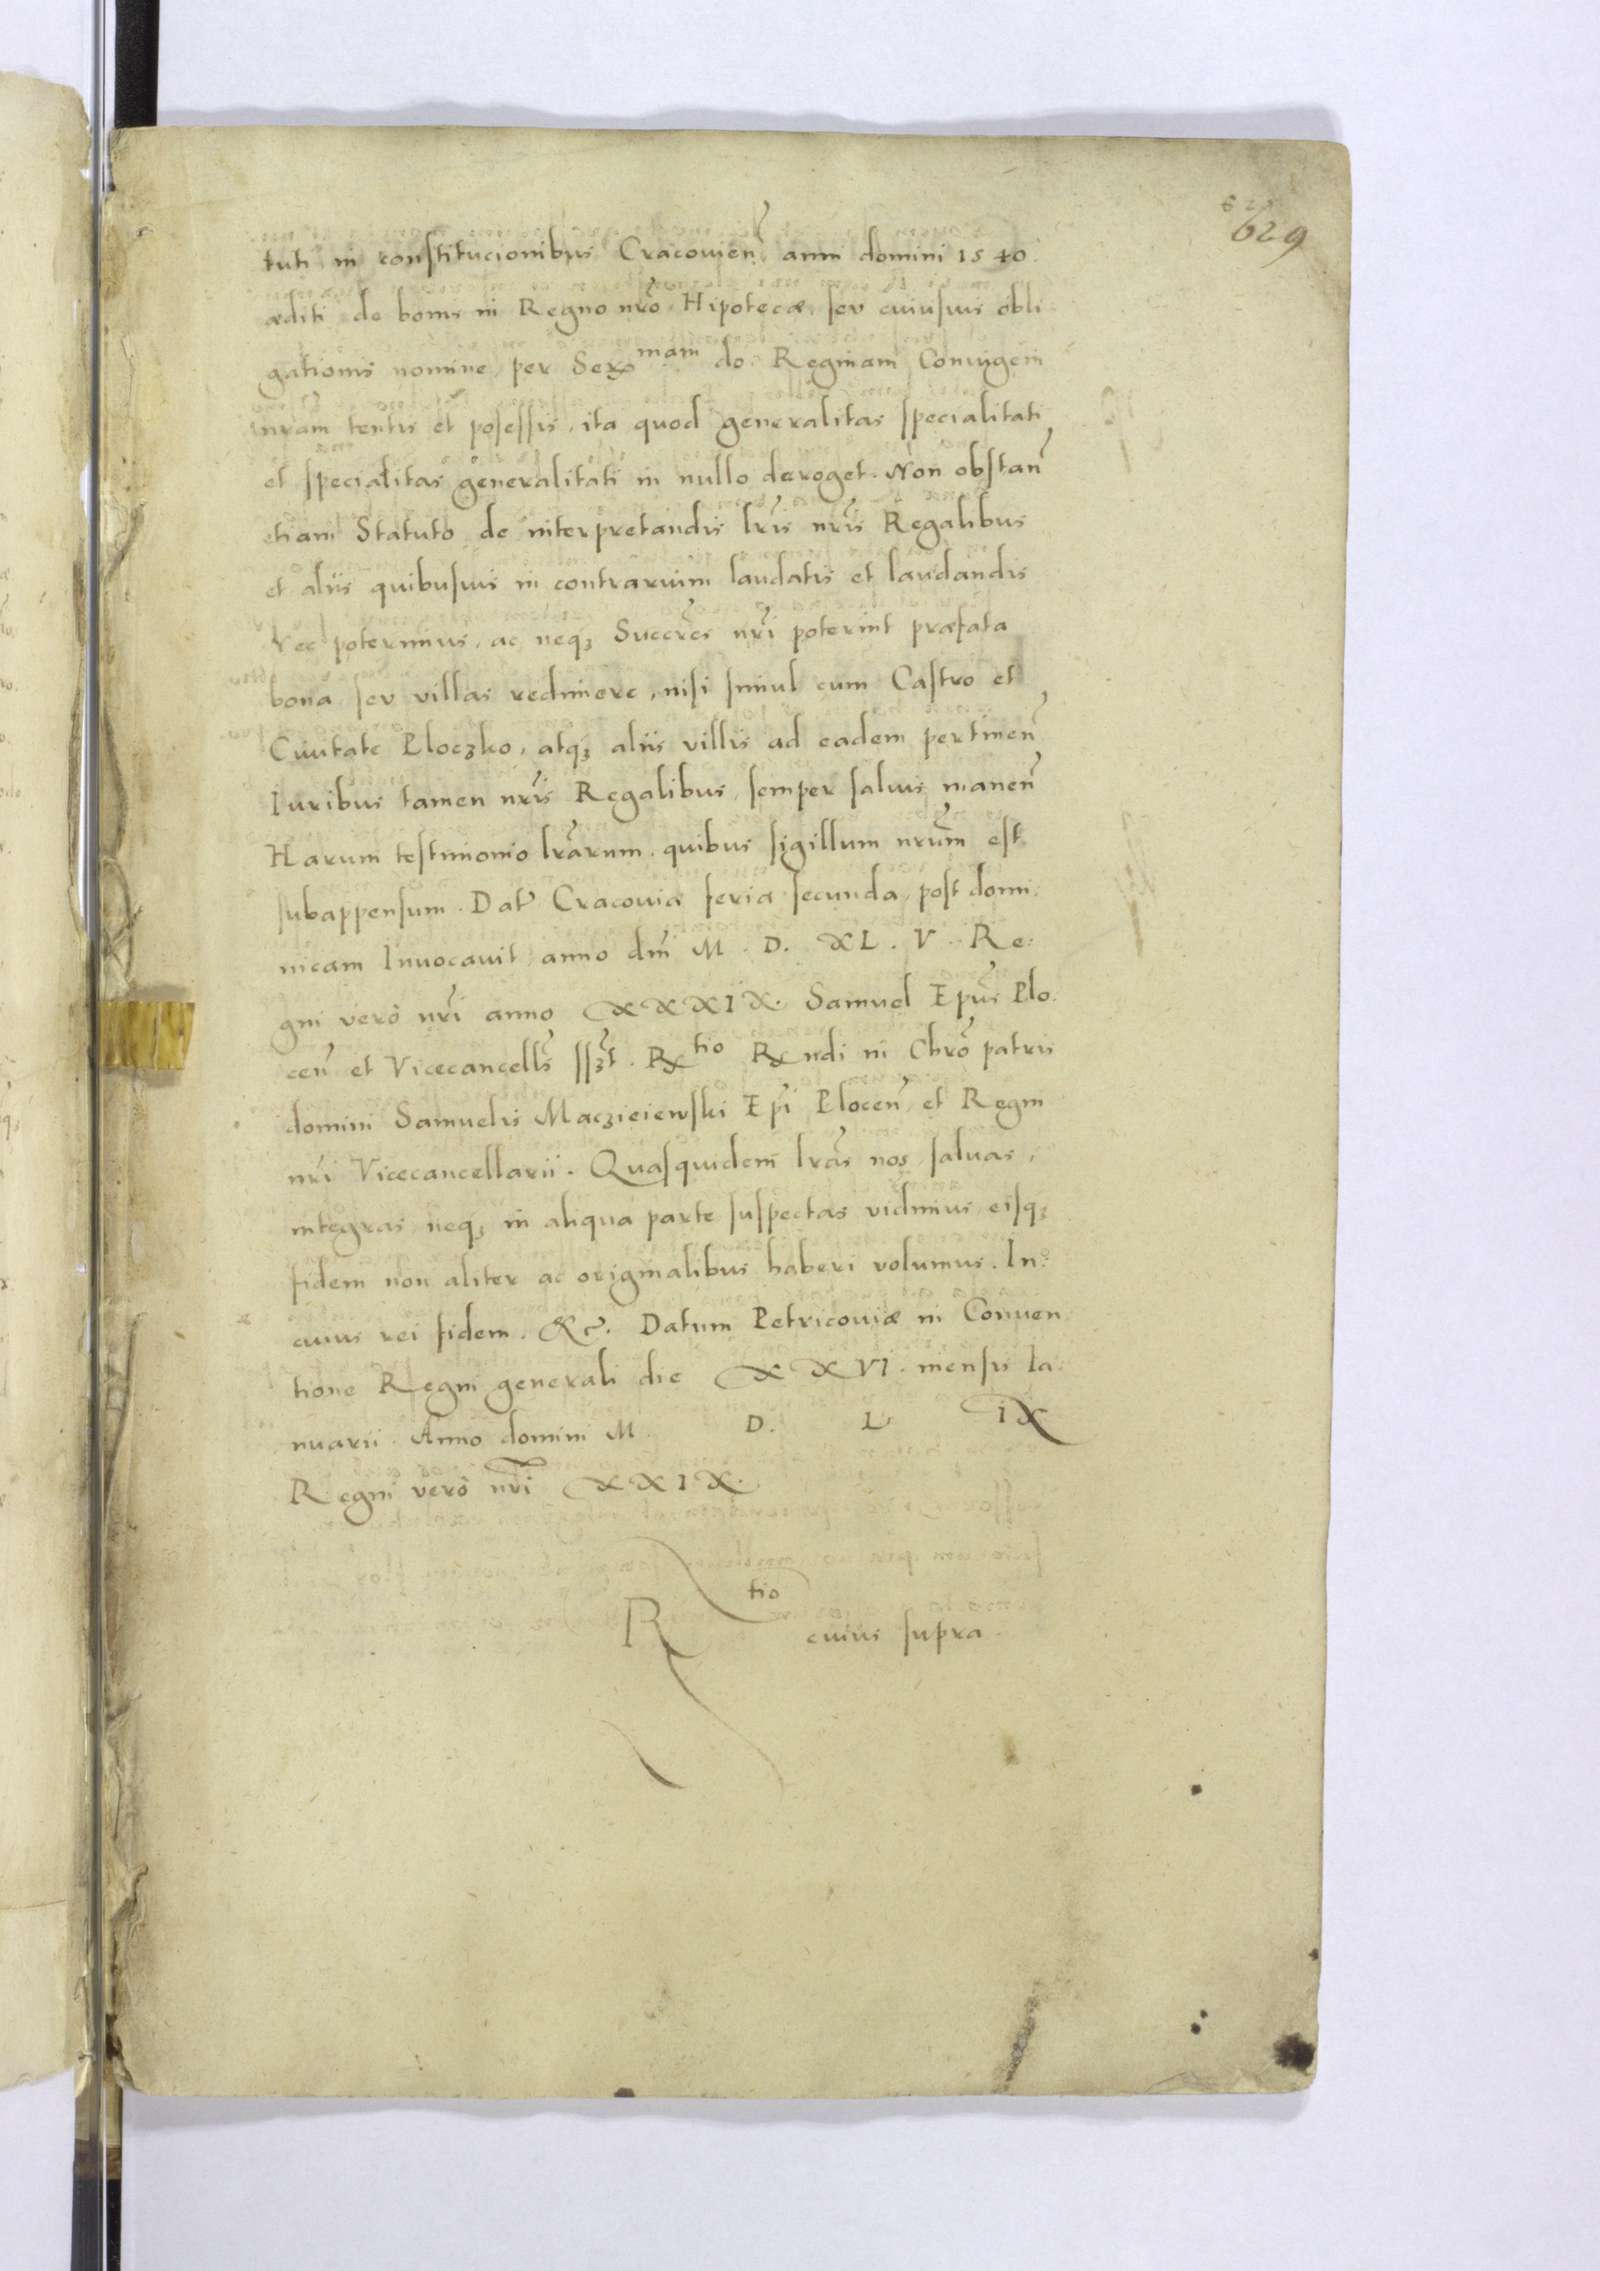 629
tuti in constitucionibus Cracovien̄ anni domini 1540
æditi de bonis in Regno nrō Hipotecæ seu cuiusvis obli
gationis nomine per Ser^mam do. Reginam Coniugem
nram̄ tentis et posessis, ita quod generalitas specialitati
et specialitas generalitati in nullo deroget. Non obstan̄
etiam Statuto de interpretandis lrīs nrīs Regalibus
et aliis quibusvis in contrarium laudatis et laudandis
Nec poterimus, ac neqꝫ Succrēs nrī poterint præfata
bona seu villas redimere, nisi simul cum Castro et
Civitate Ploczko, atqꝫ aliis villis ad eadem pertinen̄
Iuribus tamen nrīs Regalibus semper salvis manen̄
Harum testimonio lrārum quibus sigillum nrūm est
subappensum. Dat̄ Cracoviæ feria secunda post domi
nicam Invocavit anno dn̄i M. D. XL. V. Re:
gni verò nrī anno XXXIX. Samuel Epūs Plo
cen̄ et Vicecancells̄ sszt. R^tio Rndi in Chrō patris
domini Samuelis Maczieiewski Epī Plocen̄ et Regni
nrī Vicecancellarii. Quasquidem lrās nos salvas,
integras neqꝫ in aliqua parte suspectas vidimus eisqꝫ
fidem non aliter ac originalibus haberi volumus. In
cuius rei fidem. &c. Datum Petricoviæ in Conven
tione Regni generali die XXVI. mensis Ia
nuarii. Anno domini M. D. L IX
Regni verò nrī XXIX.
R^tio cuius supra